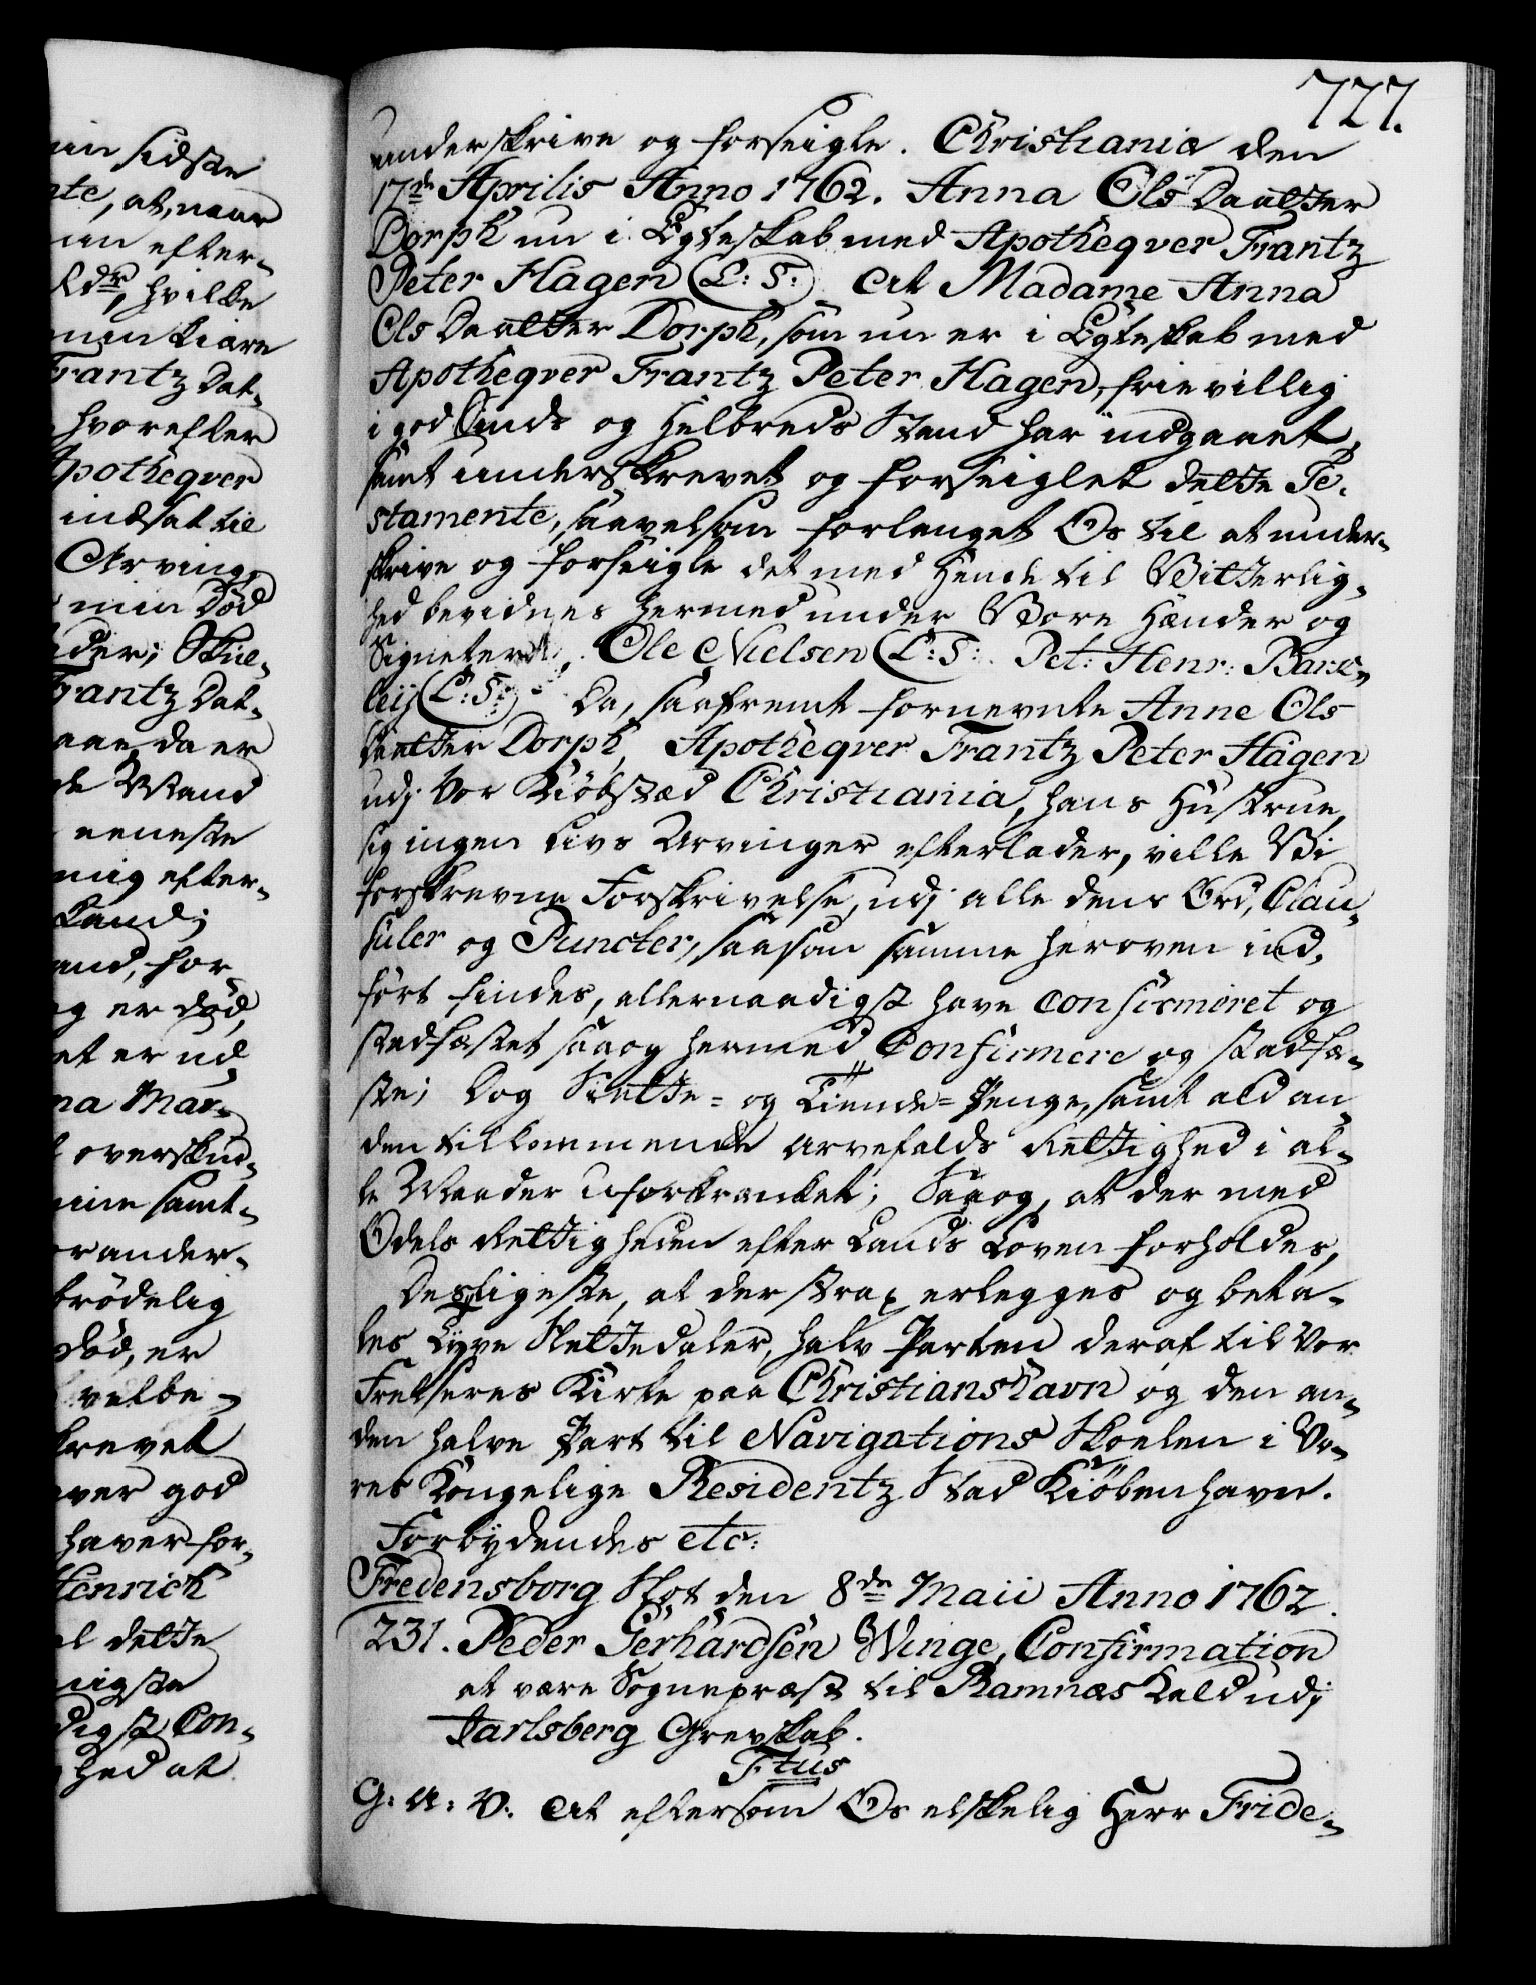 727.
underskrive og forseigle. Christiania den
17de Aprilis Anno 1762. Anna Ols Daatter
Dorph nu i Egteskab med Apotheqver Frantz
Peter Hagen (L: S:) At Madame Anna
Ols Daatter Dorph, som nu er i Egteskab med
Apotheqver Frantz Peter Hagen, frievillig
i god Sinds og Helbreds Stand har indgaaet,
samt underskrevet og forseiglet dette Te-
stamente, saavelsom forlanget Os til at under-
skrive og forseigle det med Hende til Vitterlig-
hed bevidnes hermed under Vore Hænder og
Signeter. Ole Nielsen (L: S:) Pet: Henr: Bark-
leij (L: S:) Da, saafremt fornevnte Anne Ols
Daatter Dorph, Apotheqver Frantz Peter Hagen
udj Vor Kiöbstæd Christiania, hans Hustrue,
sig ingen Livs Arvinger efterlader, ville Vi
forskrevne Forskrivelse, udj alle dens Ord, Clau-
suler og Puncter, saasom samme heroven ind-
fört findes, allernaadigst have confirmeret og
stadfæstet saaog hermed Confirmere og stadfæ-
ste; Dog Siette- og Tiende-Penge, samt ald an-
den tilkommende Arvefalds Rettighed i al-
le Maader uforkrænket; Saaog, at der med
Odels Rettigheden efter Lands Loven forholdes,
Desligeste, at der strax erlegges og beta-
les Tyve Slettedaler, halv Parten deraf til Vor
Frelseres Kirke paa Christianshavn og den an-
den halve Part til Navigations Skoelen i Vo-
res Kongelige Residentz Stad Kiöbenhavn.
Forbydendes etc:
Fredensborg Slot den 8de Maii Anno 1762.
231. Peder Gerhardsen Winge, Confirmation
at være Sognepræst til Ramnæs Kald udj
Jarlsberg Grevskab.
Ftus
G: A: V: At eftersom Os elskelig Herr Fride-